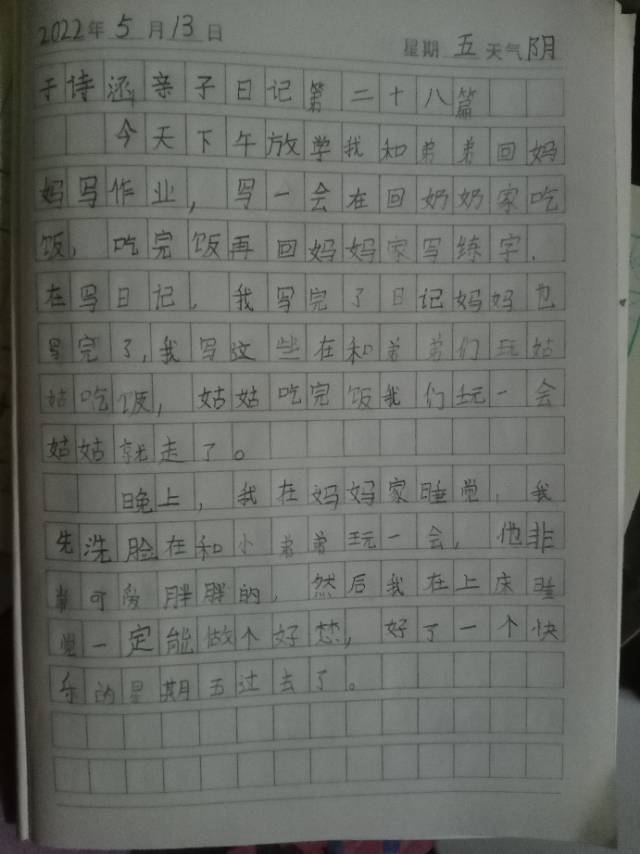 2022年5月13日 星期五天气阴
于诗涵亲子日记第二十八篇
今天下午放学我和弟弟回妈
妈写作业，写一会在回奶奶家吃
饭，吃完饭再回妈妈家写练字.
在写日记，我写完了日记妈妈也
写完了，我写这些在和弟弟们玩姑
姑吃饭，姑姑吃完饭我们玩一会
姑姑就走了。
晚上，我在妈妈家睡觉，我
先洗脸在和小弟弟玩一会，他非
常可爱胖胖的，然后我在上床睡
觉一定能做个好梦，好了一个快
乐的星期五过去了。